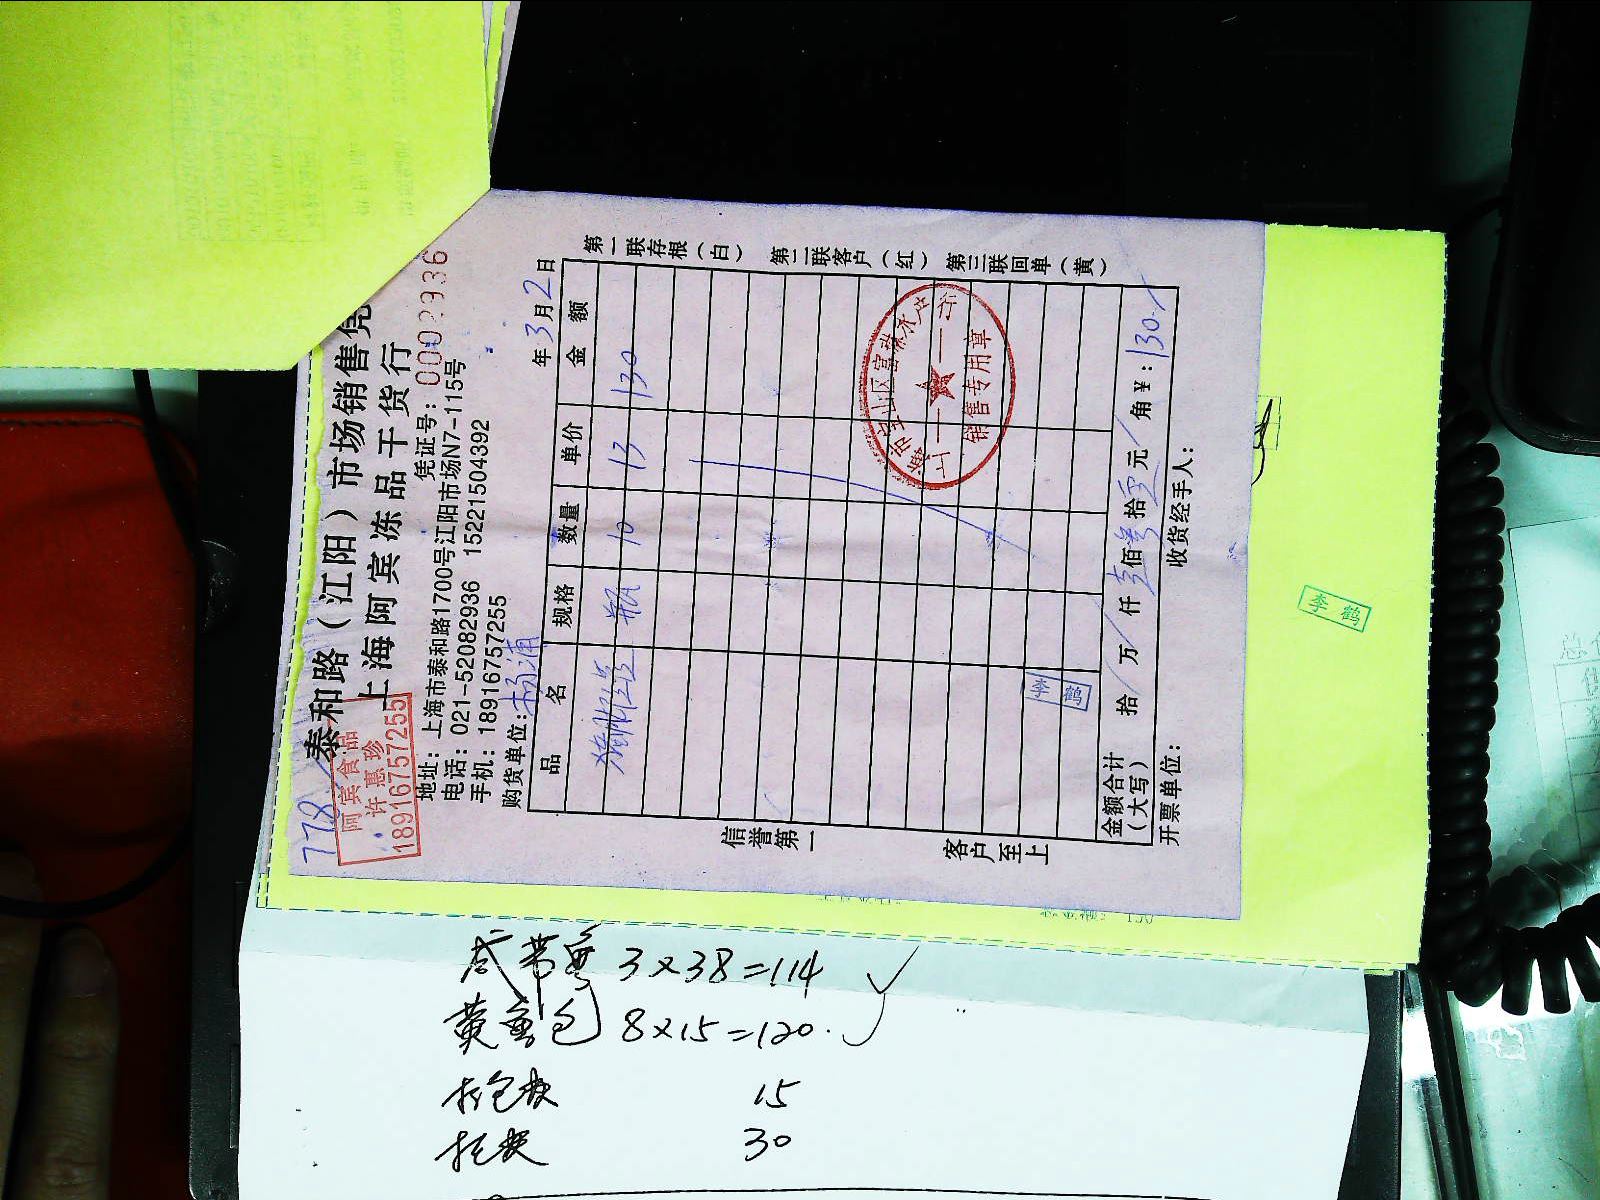 778
泰和路（江阳）市场销售凭
上海阿宾冻品干货行
阿宾食品
许惠珍
18916757255
凭证号：0002936
地址：上海市泰和路1700号江阳市场N7-115号
电话：021-52082936 15221504392
手机：18916757255
购货单位：杨浦
年3月2日
品名 规格 数量 单价 金额
瓶 10 13 130
销售专用章
李鹤
金额合计（大写） 拾 万 仟 壹佰叁拾零元 角 ¥：130.
开票单位： 收货经手人：
信誉第一
客户至上
第一联存根（白） 第二联客户（红） 第三联回单（黄）
李鹤
3×38=114
黄鱼包 8×15=120.
15
30